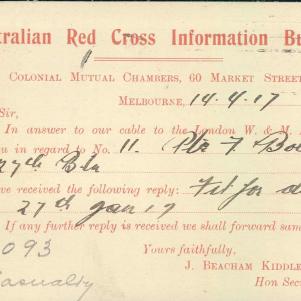 tralian Red Cross Information Bu
Colonial Mutual Chambers, 60 Market Street
Melbourne, 14.4.17
Sir,
In answer to our cable to the London W. & M.
u in regard to No. 11. Pte F. Bo
27th Btn
ve received the following reply: Fit for d
27th Jan 17
If any further reply is received we shall forward same
093
Yours faithfully,
J. Beacham Kiddle
Hon Sec
Casualty